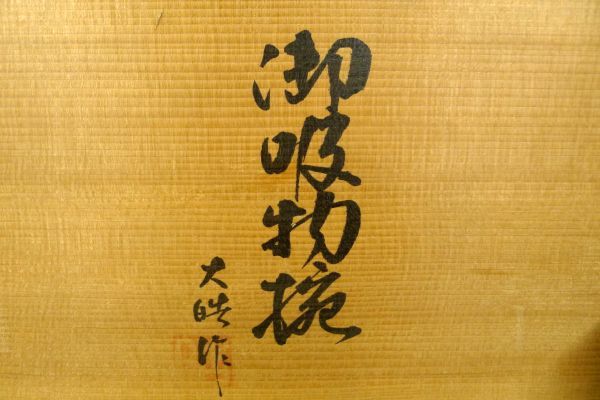 御吸物椀
大皓作